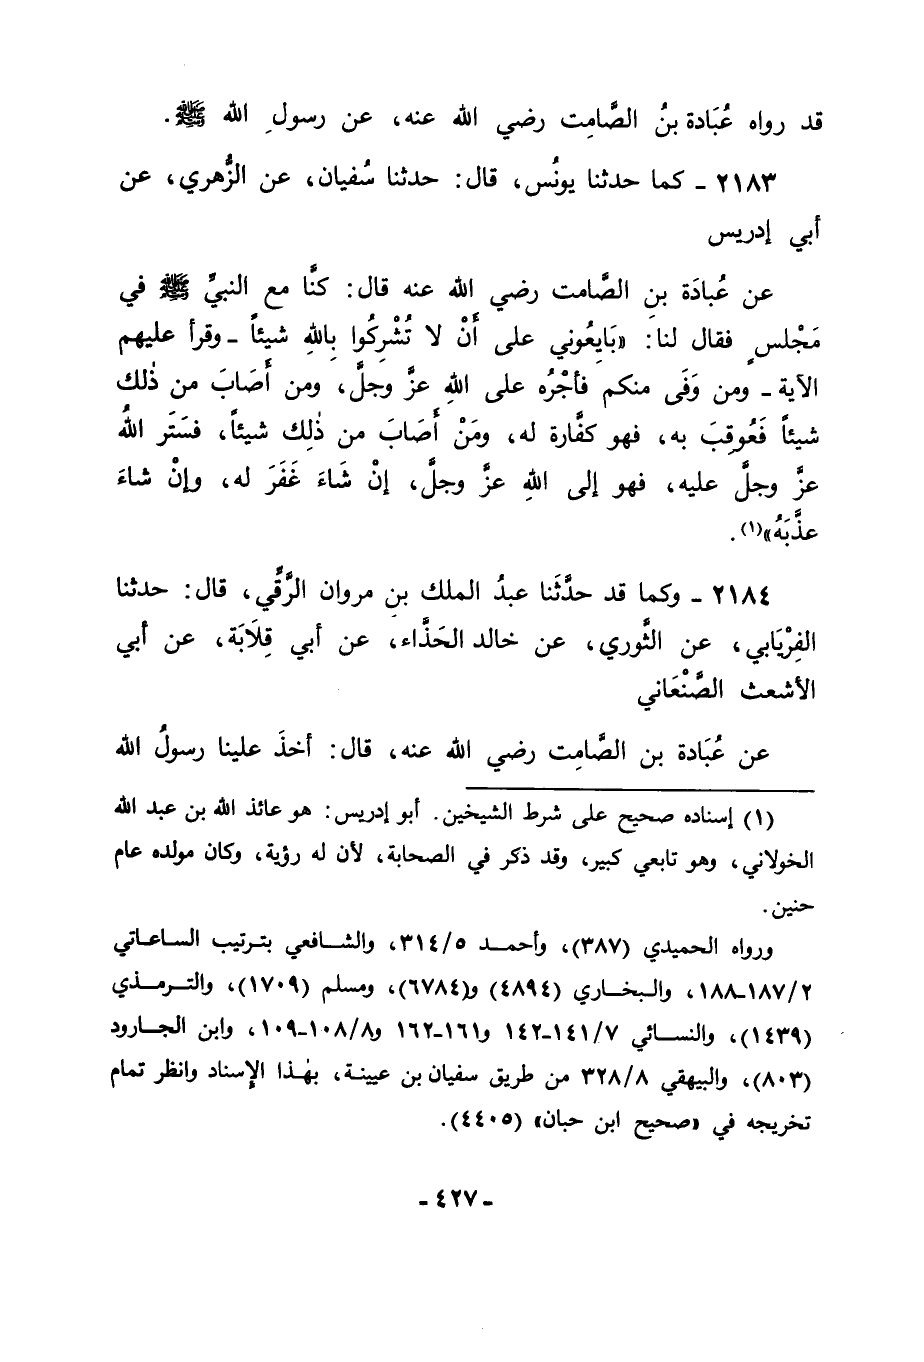 قد رواه عُبَادة بنُ الصَّامِت رضي الله عنه، عن رسولِ الله ﷺ.
٢١٨٣ ـ كما حدثنا يونُس، قال: حدثنا سُفيان، عن الزُّهري، عن
أبي إدريس
عن عُبادَة بنِ الصَّامت رضي الله عنه قال: كنَّا مع النبيِّ ﷺ في
مَجْلسٍ فقال لنا: «بَايِعُوني على أَنْ لا تُشْرِكُوا بِاللهِ شيئاً ـ وقرأ عليهم
الآية ـ ومن وَفَى منكم فأجْرُه على اللهِ عزَّ وجلَّ، ومن أَصَابَ من ذٰلك
شيئاً فَعُوقِبَ به، فهو كفَّارة له، ومَنْ أَصَابَ من ذٰلِك شيئاً، فسَتَر اللهُ
عزَّ وجلَّ عليه، فهو إلى اللهِ عزَّ وجلَّ، إنْ شَاءَ غَفَرَ له، وإنْ شاءَ
عذَّبَهُ»(١).
٢١٨٤ ـ وكما قد حدَّثَنا عبدُ الملك بنِ مروان الرَّقِّي، قال: حدثنا
الفِرْيَابي، عن الثَّوري، عن خالد الحَذَّاء، عن أبي قِلَابَة، عن أبي
الأشعث الصَّنْعَاني
عن عُبَادة بن الصَّامِت رضي الله عنه، قال: أخذَ علينا رسولُ الله
(١) إسناده صحيح على شرط الشيخين. أبو إدريس: هو عائذ الله بن عبد الله
الخولاني، وهو تابعي كبير، وقد ذكر في الصحابة، لأن له رؤية، وكان مولده عام
حنين.
ورواه الحميدي (٣٨٧)، وأحمد ٣١٤/٥، والشافعي بترتيب الساعاتي
١٨٧/٢-١٨٨، والبخاري (٤٨٩٤) و(٦٧٨٤)، ومسلم (١٧٠٩)، والترمذي
(١٤٣٩)، والنسائي ١٤١/٧-١٤٢ و١٦١-١٦٢ و١٠٨/٨-١٠٩، وابن الجارود
(٨٠٣)، والبيهقي ٣٢٨/٨ من طريق سفيان بن عيينة، بهٰذا الإسناد وانظر تمام
تخريجه في «صحيح ابن حبان» (٤٤٠٥).
ـ ٤٢٧ ـ